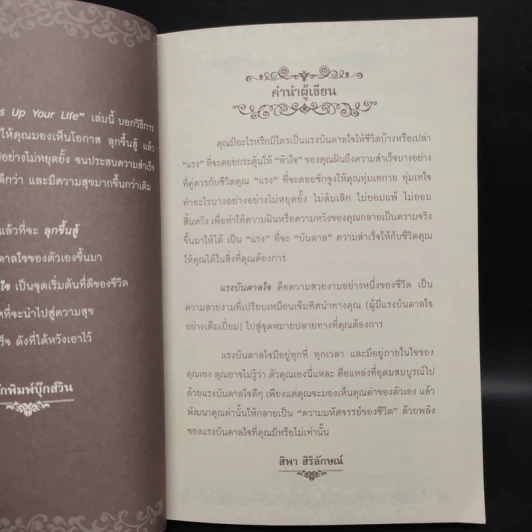 s Up Your Life" เล่มนี้ บอกวิธีการ
ให้คุณมองเห็นโอกาส ลุกขึ้นสู้ แล้ว
อย่างไม่หยุดยั้ง จนประสบความสำเร็จ
ดีกว่า และมีความสุขมากขึ้นกว่าเดิม
แล้วที่จะ ลุกขึ้นสู้
ดาลใจของตัวเองขึ้นมา
ใจ เป็นจุดเริ่มต้นที่ดีของชีวิต
ที่จะนำไปสู่ความสุข
ร็จ ดังที่ได้หวังเอาไว้
กพิมพ์บุ๊กส์วิน
คำนำผู้เขียน
คุณมีอะไรหรือมีใครเป็นแรงบันดาลใจให้ชีวิตบ้างหรือเปล่า
"แรง" ที่จะคอยกระตุ้นให้ "หัวใจ" ของคุณฝันถึงความสำเร็จบางอย่าง
ที่คู่ควรกับชีวิตคุณ "แรง" ที่จะคอยชักจูงให้คุณทุ่มเทกาย ทุ่มเทใจ
ทำอะไรบางอย่างอย่างไม่หยุดยั้ง ไม่ล้มเลิก ไม่ยอมแพ้ ไม่ยอม
สิ้นหวัง เพื่อทำให้ความฝันหรือความหวังของคุณกลายเป็นความจริง
ขึ้นมาให้ได้ เป็น "แรง" ที่จะ "บันดาล" ความสำเร็จให้กับชีวิตคุณ
ให้คุณได้ในสิ่งที่คุณต้องการ
แรงบันดาลใจ คือความสวยงามอย่างหนึ่งของชีวิต เป็น
ความสวยงามที่เปรียบเหมือนเข็มทิศนำทางคุณ (ผู้มีแรงบันดาลใจ
อย่างเต็มเปี่ยม) ไปสู่จุดหมายปลายทางที่คุณต้องการ
แรงบันดาลใจมีอยู่ทุกที่ ทุกเวลา และมีอยู่ภายในใจของ
คุณเอง คุณอาจไม่รู้ว่า ตัวคุณเองนี่แหละ คือแหล่งที่อุดมสมบูรณ์ไป
ด้วยแรงบันดาลใจดีๆ เพียงแต่คุณจะมองเห็นคุณค่าของตัวเอง แล้ว
พัฒนาคุณค่านั้นให้กลายเป็น "ความมหัศจรรย์ของชีวิต" ด้วยพลัง
ของแรงบันดาลใจที่คุณมีหรือไม่เท่านั้น
สิพา สิริลักษณ์